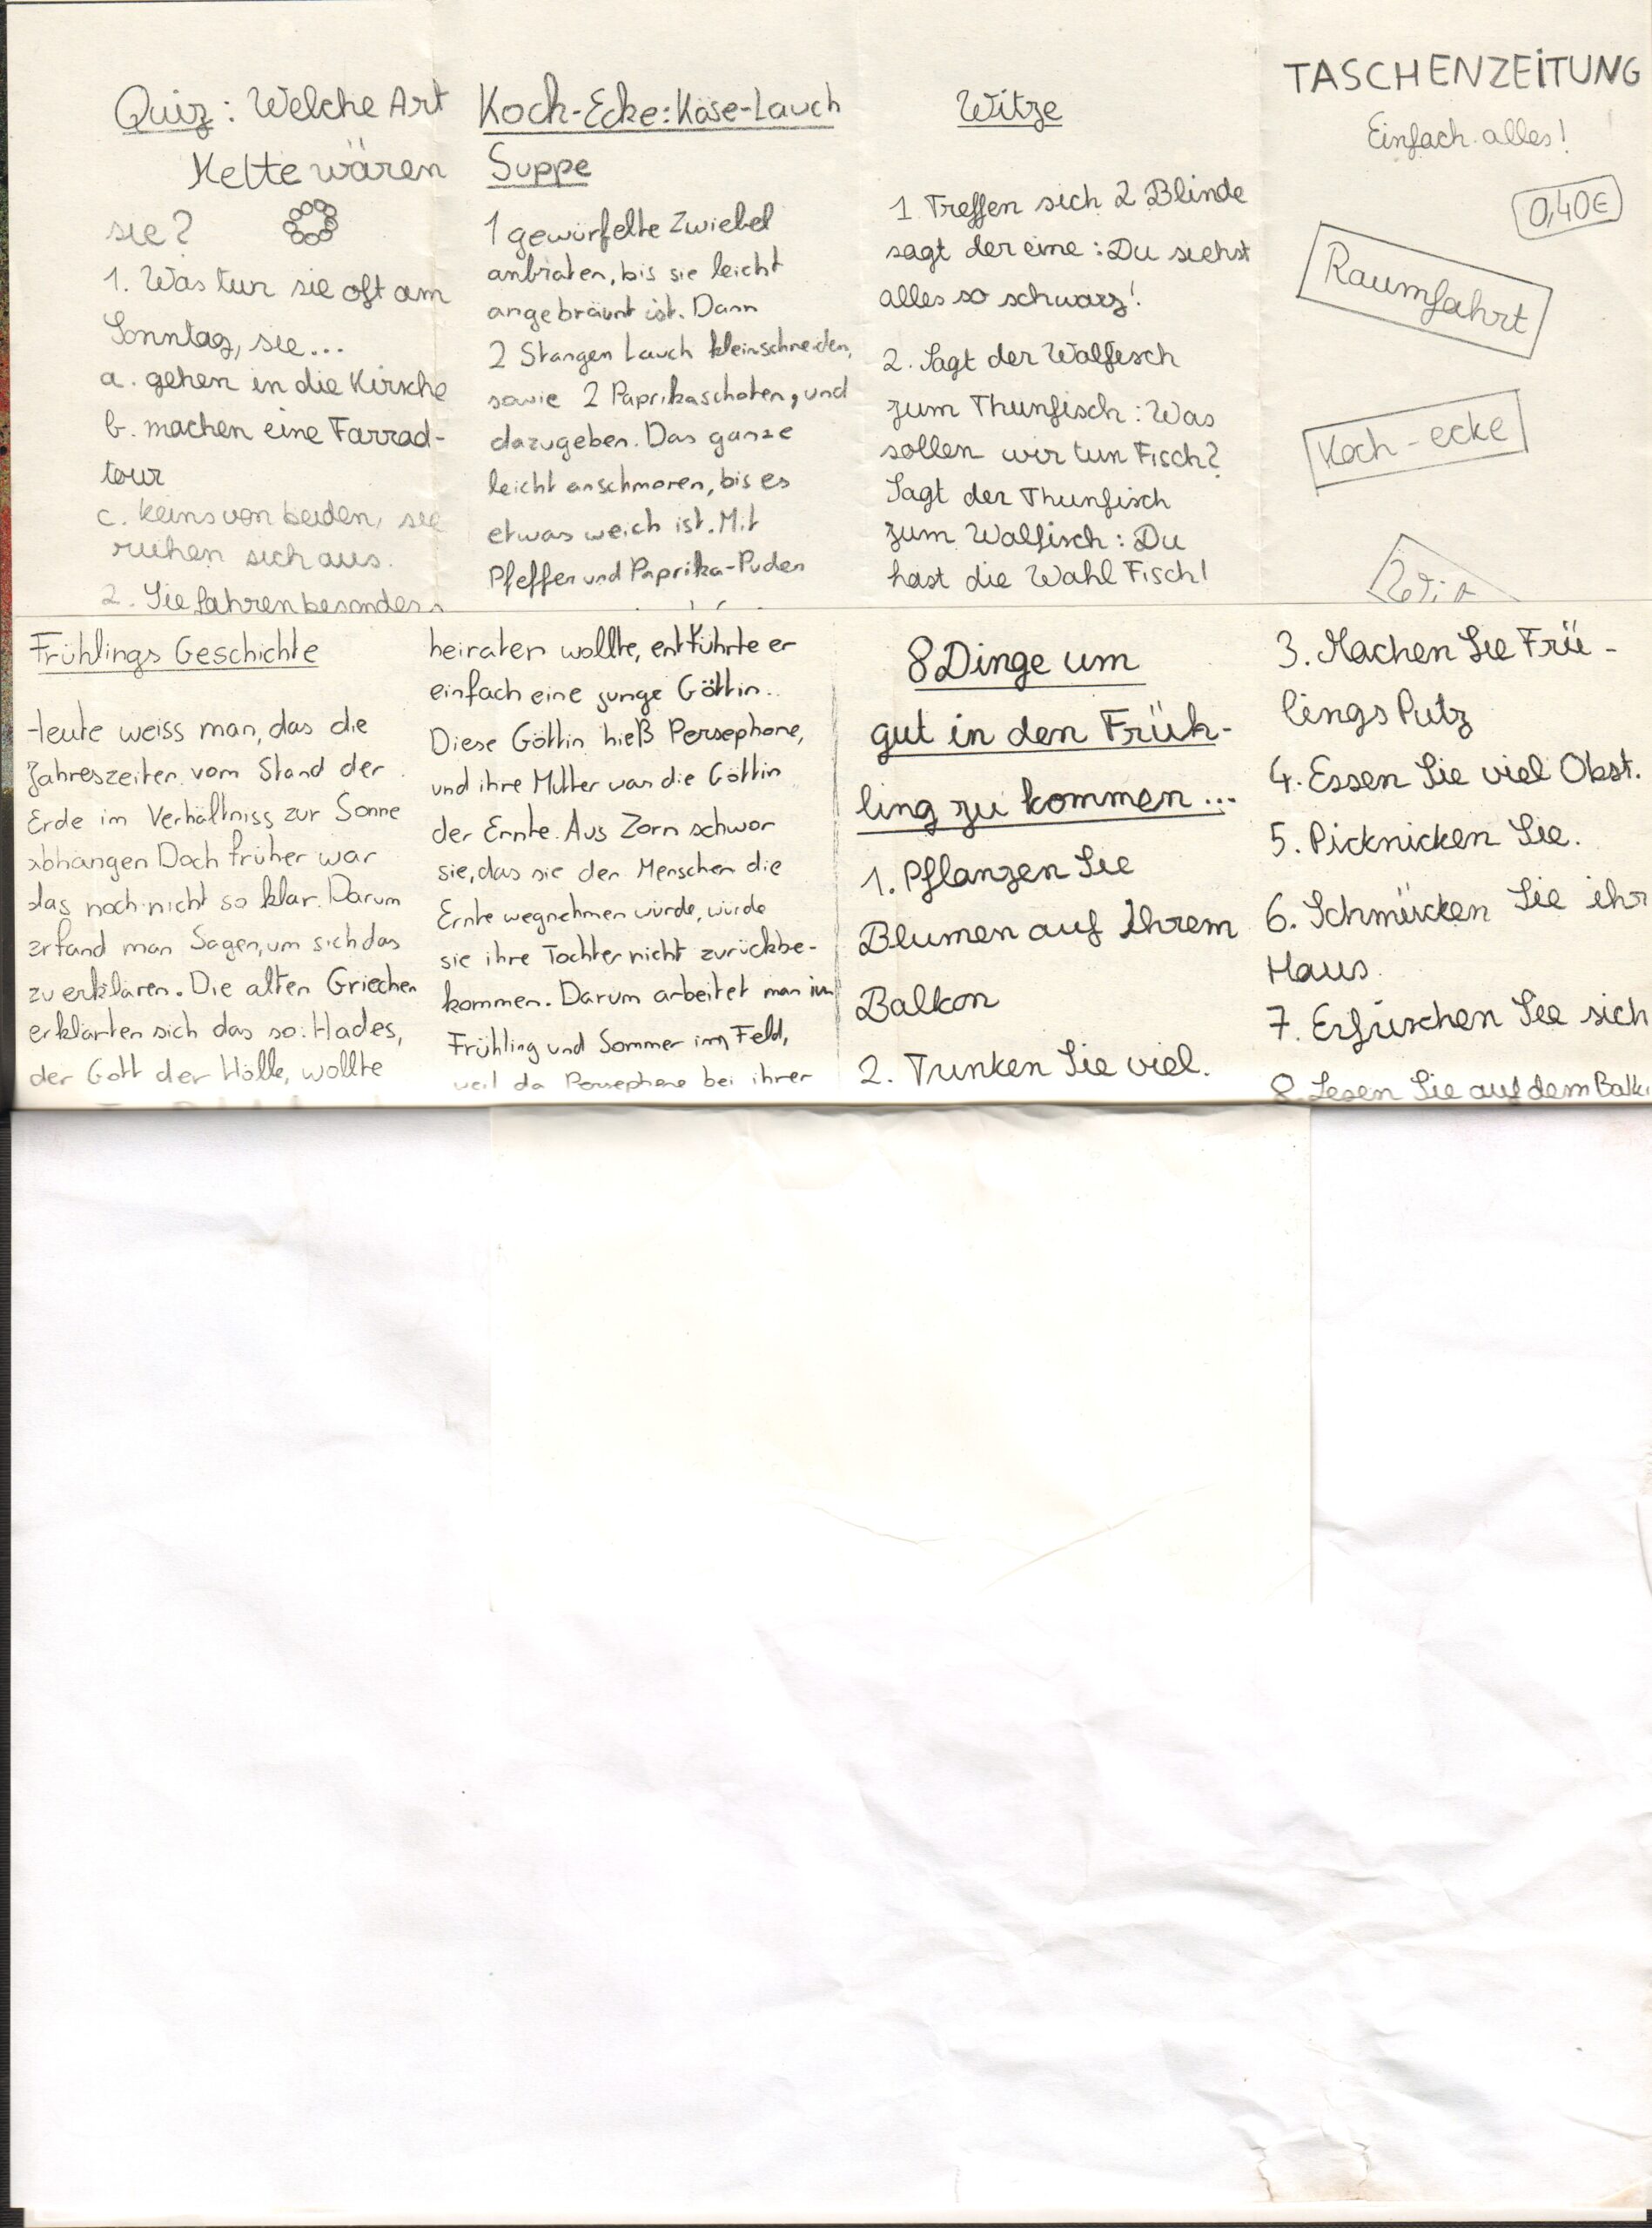 Quiz: Welche Art
Kette wären
sie?
1. Was tun sie oft am
Sonntag, sie...
a. gehen in die Kirsche
b. machen eine Farrad-
tour
c. keins von beiden, sie
ruhen sich aus.
2. Sie fahren besonders
Koch-Ecke: Käse-Lauch
Suppe
1 gewürfelte Zwiebel
anbraten, bis sie leicht
angebräunt ist. Dann
2 Stangen Lauch kleinschneiden,
sowie 2 Paprikaschoten, und
dazugeben. Das ganze
leicht anschmoren, bis es
etwas weich ist. Mit
Pfeffer und Paprika-Puder
Witze
1 Treffen sich 2 Blinde
sagt der eine: Du siehst
alles so schwarz!
2. Sagt der Walfisch
zum Thunfisch: Was
sollen wir tun Fisch?
Sagt der Thunfisch
zum Walfisch: Du
hast die Wahl Fisch!
TASCHENZEITUNG
Einfach alles!
0,40€
Raumfahrt
Koch-ecke
Frühlings Geschichte
Heute weiss man, das die
Jahreszeiten vom Stand der
Erde im Verhältniss zur Sonne
abhängen Doch früher war
das noch nicht so klar. Darum
erfand man Sagen, um sich das
zu erklären. Die alten Griechen
erklärten sich das so: Hades,
der Gott der Hölle, wollte
heiraten wollte, entführte er
einfach eine junge Göttin.
Diese Göttin hieß Persephone,
und ihre Mutter war die Göttin
der Ernte. Aus Zorn schwor
sie, das sie den Menschen die
Ernte wegnehmen würde, würde
sie ihre Tochter nicht zurückbe-
kommen. Darum arbeitet man im
Frühling und Sommer im Feld,
weil da Persephone bei ihrer
8 Dinge um
gut in den Früh-
ling zu kommen...
1. Pflanzen Sie
Blumen auf Ihrem
Balkon
2. Trinken Sie viel.
3. Machen Sie Frü-
lings Putz
4. Essen Sie viel Obst.
5. Picknicken Sie.
6. Schmücken Sie ihr
Haus.
7. Erfrischen Sie sich
8. Lesen Sie auf dem